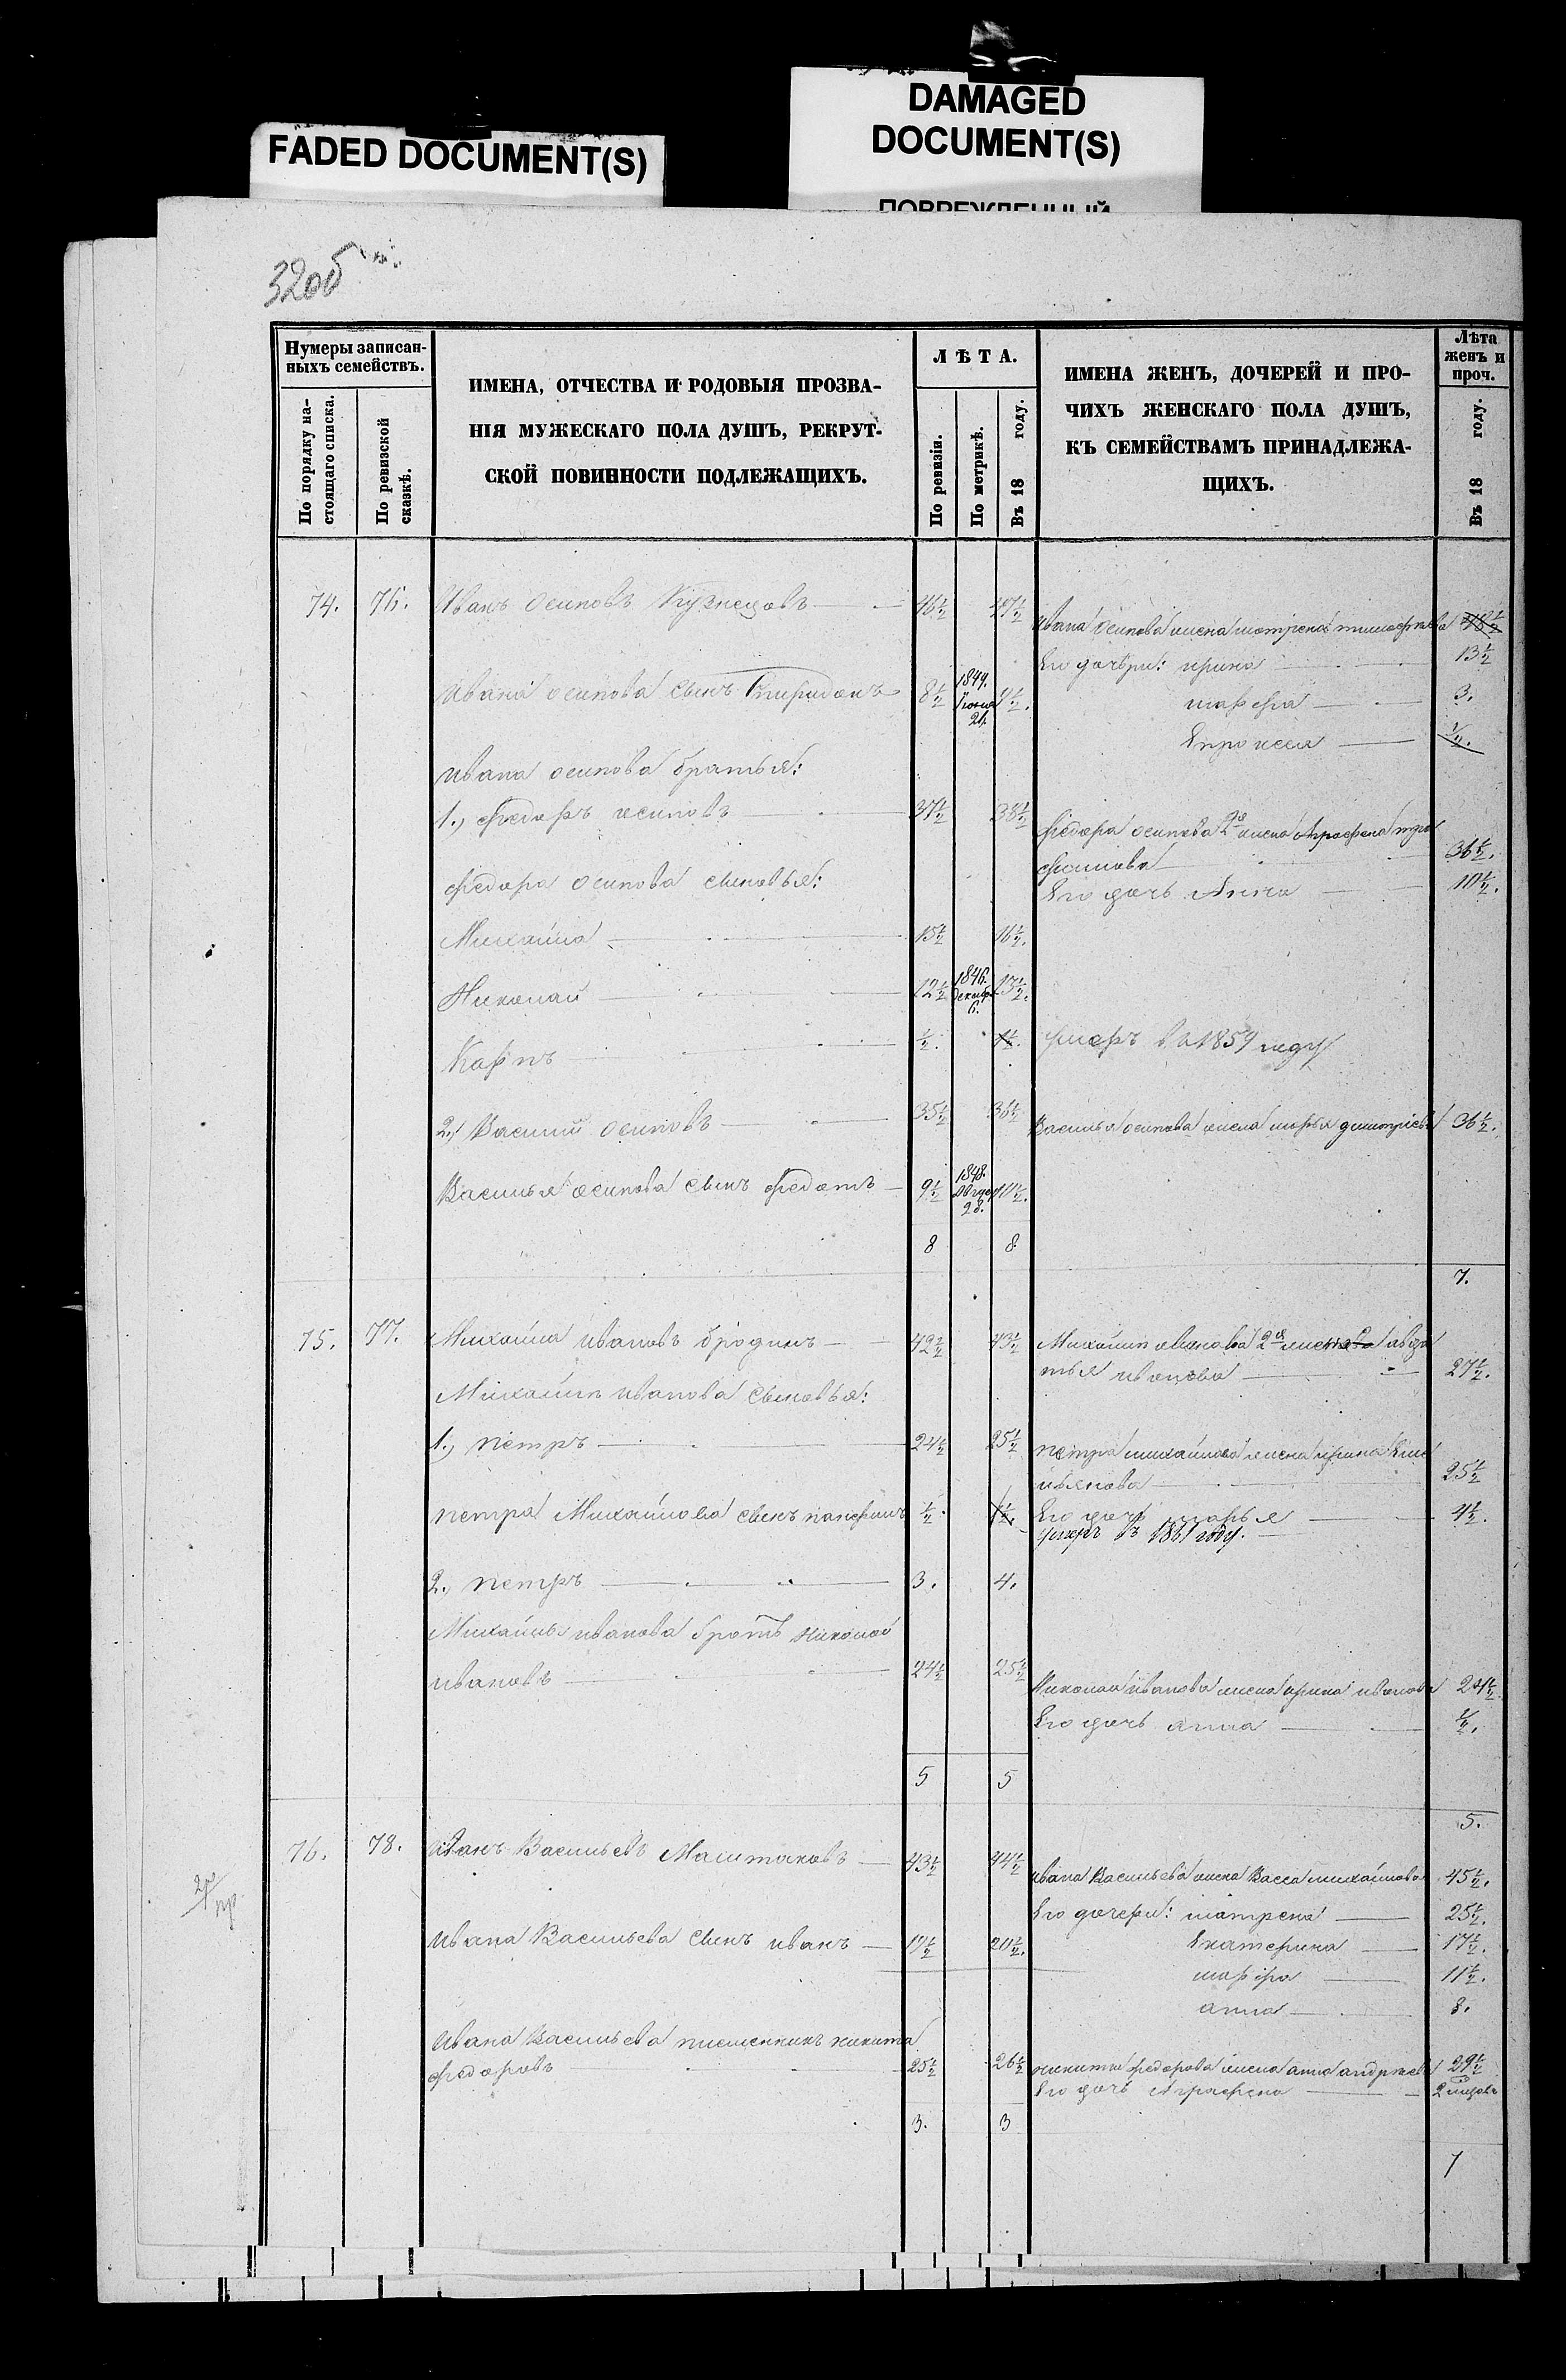 FADED DOCUMENT(S)
DAMAGED
DOCUMENT(S)
32об
Нумеры записан-
ныхъ семействъ.
По порядку на-
стоящаго списка.
По ревизской
сказкѣ.
ИМЕНА, ОТЧЕСТВА И РОДОВЫЯ ПРОЗВА-
НІЯ МУЖЕСКАГО ПОЛА ДУШЪ, РЕКРУТ-
СКОЙ ПОВИННОСТИ ПОДЛЕЖАЩИХЪ.
ЛѢТА.
По ревизіи.
По метрикѣ.
Въ 18 году.
ИМЕНА ЖЕНЪ, ДОЧЕРЕЙ И ПРО-
ЧИХЪ ЖЕНСКАГО ПОЛА ДУШЪ,
КЪ СЕМЕЙСТВАМЪ ПРИНАДЛЕЖА-
ЩИХЪ.
Лѣта
женъ и
проч.
Въ 18 году.
74. 76. Иванъ Осиповъ Кузнецовъ 46½ 47½
Ивана Осипова жена матрена тимофѣева 48½
Его дочери: ирина 13½
Ивана осипова сынъ Спиридонъ 8½ 1849. 9½.
марфа 3.
Епроксея ½.
Ивана осипова братья:
1., федоръ осиповъ 37½ 38½
федора осипова 2я жена Аграфена тро
фимова 36½.
федора осипова сыновья:
Его дочь Анна 10½.
Михаила 15½ 16½.
Николай 12½ 1846. декабр. 6. 13½.
Карпъ ½. 1½. умеръ въ 1859 году
2., Василий осиповъ 35½ 36½
Василья осипова жена марья дмитріева 36½.
Василья осипова сынъ федотъ 9½ 1848. Август 28. 10½.
8 8
7.
75. 77. Михаила ивановъ бродинъ 42½ 43½
Михаила иванова 2я жена авдо
тья иванова 27½.
Михаила иванова сыновья:
1., петръ 24½ 25½
петра михайлова жена ирина Еме
льянова 25½
петра Михайлова сынъ панфилъ ½. 1½.
Его дочь марья 4½.
умеръ въ 1861 году.
2., петръ 3. 4.
Михайлы иванова братъ николай
ивановъ 24½ 25½
Николая иванова жена ирина иванова 24½
Его дочь анна ½.
5 5
5.
76. 78. Иванъ Васильевъ Маштаковъ 43½ 44½
Ивана Васильева жена Васса михайлова 45½.
Его дочери: матрена 25½.
Ивана Васильева сынъ иванъ 20½.
Екатерина 17½.
марфа 11½.
анна 8.
Ивана Васильева племенникъ никита
федоровъ 25½ 26½
никиты федорова жена анна андреева 29½
Его дочь Аграфена
3. 3
7